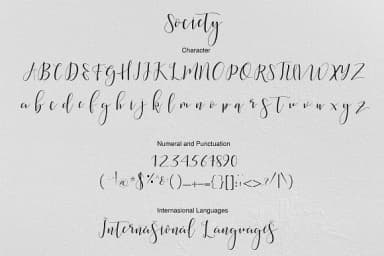 Society
Character
ABCDEFGHIJKLMNOPQRSTUVWXYZ
abcdefghijklmnopqrstuvwxyz
Numeral and Punctuation
1234567890
Internasional Languages
Internasional Languages